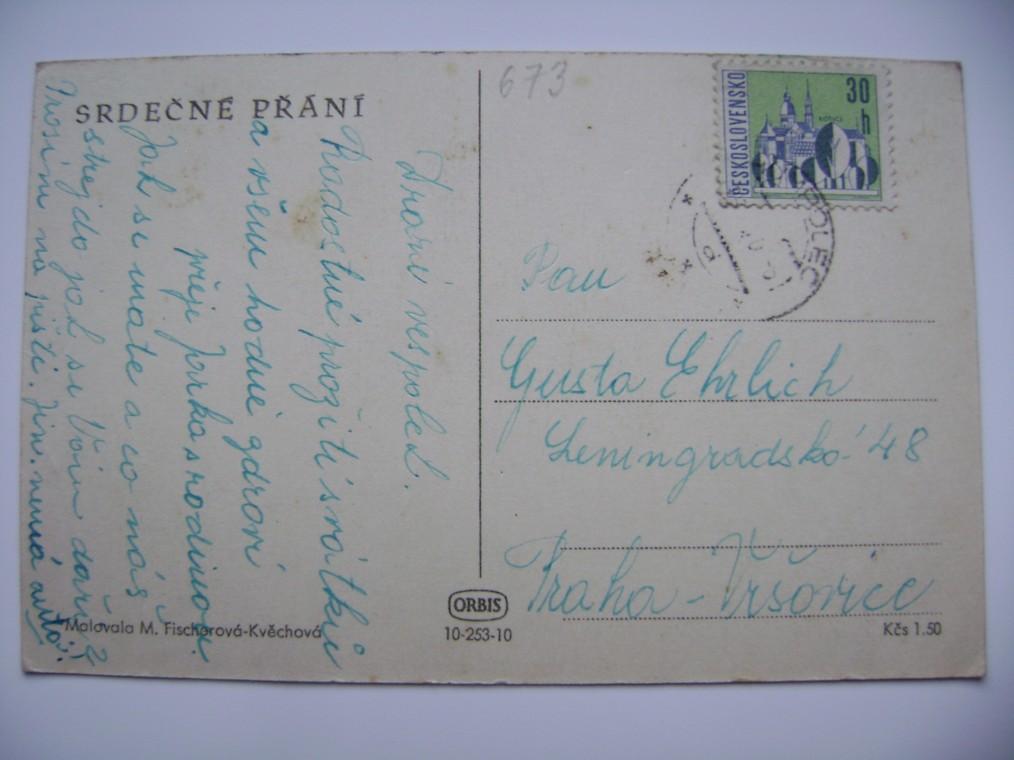 SRDEČNÉ PŘÁNÍ
Drazí vespolek.
Radostné prožití svátků
a všem hodně zdraví
přeje Jarka s rodinou.
Jak se máte a co náš
strejda jak se Vám daří?
Prosím na příští. Jin. nemá auto!
Malovala M. Fischerová-Kvěchová
ORBIS
10-253-10
673
ČESKOSLOVENSKO
30 h
KOŠICE
Pan
Gusta Ehrlich
Leningradská 48
Praha - Vršovice
Kčs 1.50